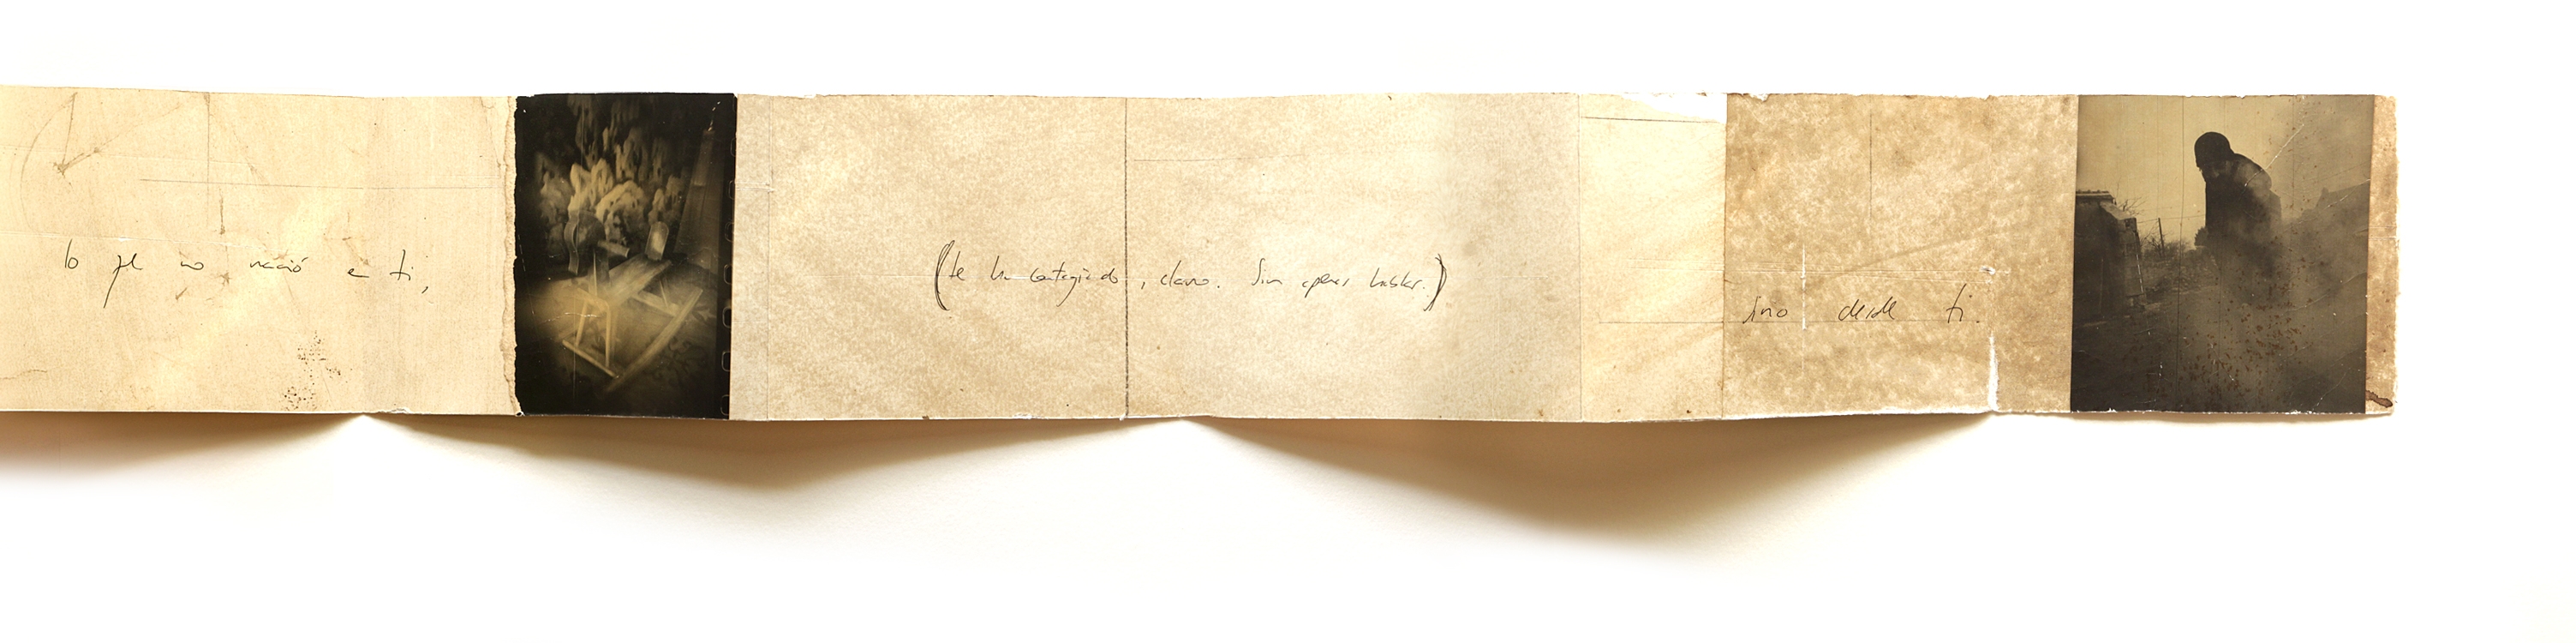 lo que no nació en ti,
(te ha contagiado, claro. Sin apenas hablar.)
sino desde ti.